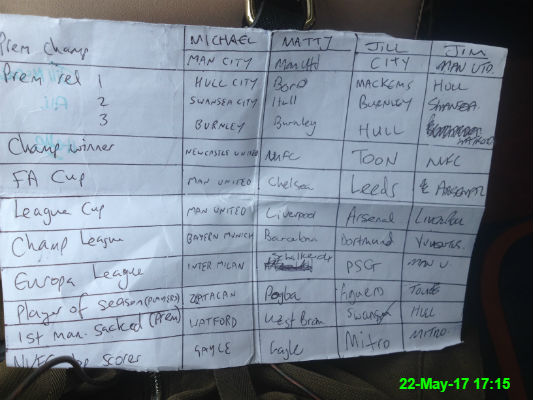 MICHAEL MATTY JILL JIM
Prem Champ MAN CITY Man Utd CITY MAN UTD.
Prem rel 1 HULL CITY Boro MACKEMS HULL
2 SWANSEA CITY Hull BURNLEY SWANSEA
3 BURNLEY Burnley HULL
Champ winner NEWCASTLE UNITED NUFC TOON NUFC
FA Cup MAN UNITED Chelsea Leeds ARSENAL
League Cup MAN UNITED Liverpool Arsenal LIVERPOOL
Champ League BAYERN MUNICH Barcelona Dortmund JUVENTUS
Europa League INTER MILAN PSG MAN U.
Player of season (PLAYERS) ZLATACAN Pogba Aguero
1st man. sacked (Prem) WATFORD West Brom Swansea HULL
NUFC top scorer GAYLE Gayle Mitro MITRO.
22-May-17 17:15